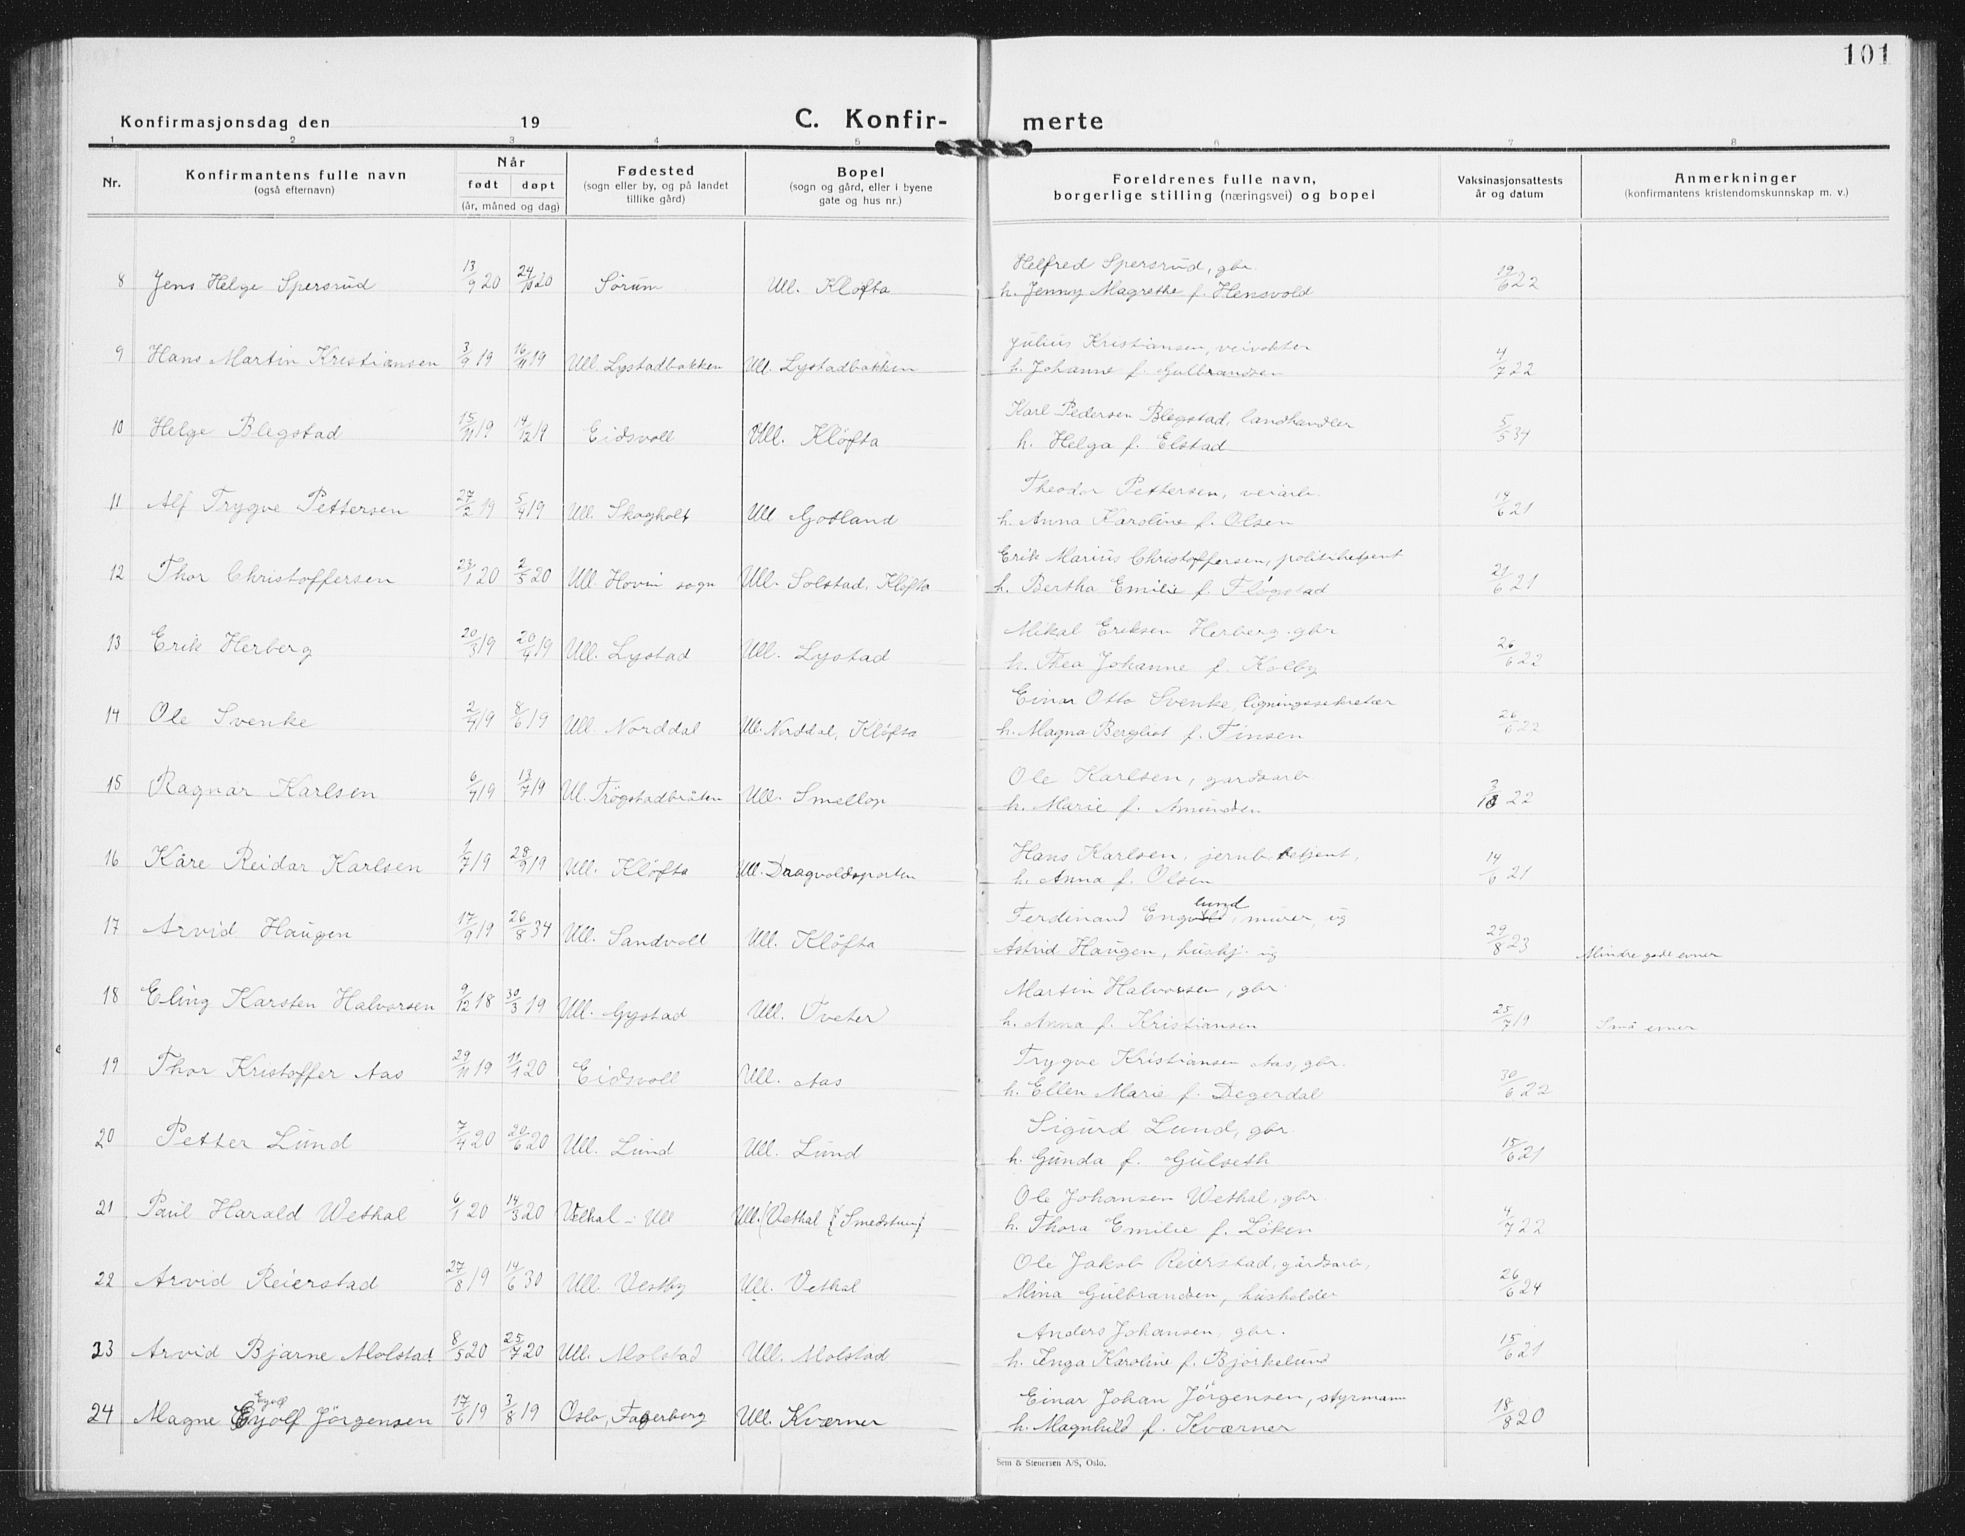 101
Konfirmasjonsdag den 19
C. Konfir- merte
1 2 3 4 5 6 7 8
Nr.
Konfirmantens fulle navn
(også efternavn)
Når
født døpt
(år, måned og dag)
Fødested
(sogn eller by, og på landet
tillike gård)
Bopel
(sogn og gård, eller i byene
gate og hus nr.)
Foreldrenes fulle navn,
borgerlige stilling (næringsvei) og bopel
Vaksinasjonsattests
år og datum
Anmerkninger
(konfirmantens kristendomskunnskap m. v.)
Helfred Spersrud, gbr.
8 Jens Helge Spersrud 13/9 20 24/10 20 Sørum Ull. Kløfta h. Jenny Magrethe f. Hensvold 19/6 22
Julius Kristiansen, veivokter
9 Hans Martin Kristiansen 3/9 19 16/11 19 Ull. Lystadbakken Ull. Lystadbakken h. Johanne f. Gulbrandsen 4/7 22
Karl Pedersen Blegstad, landhandler
10 Helge Blegstad 15/11 19 14/12 19 Eidsvoll Ull. Kløfta h. Helga f. Elstad 5/5 34
Theodor Pettersen, veiarb.
11 Alf Trygve Pettersen 27/2 19 5/4 19 Ull. Skogholt Ull Gotland h. Anna Karoline f. Olsen 14/6 21
Erik Marius Christoffersen, politibetjent
12 Thor Christoffersen 23/1 20 2/5 20 Ull. Hovin sogn Ull. Solstad, Kløfta h. Bertha Emilie f. Fløgstad 21/6 21
Mikal Eriksen Herberg gbr
13 Erik Herberg 20/3 19 20/4 19 Ull. Lystad Ull. Lystad h. Thea Johanne f. Kolby 26/6 22
Einar Otto Svenke, ligningssekretær
14 Ole Svenke 2/4 19 8/6 19 Ull. Norddal Ull. Norddal, Kløfta h. Magna Bergliot f. Finsen 26/6 22
Ole Karlsen, gardsarb
15 Ragnar Karlsen 6/4 19 13/7 19 Ul. Trøgstadbråten Ull. Smellop h. Marie f. Amundsen 3/10 22
Hans Karlsen, jernb.betjent,
16 Kåre Reidar Karlsen 1/7 19 28/9 19 Ull. Kløfta Ull. Dragvoldsporten h. Anna f. Olsen 14/6 21
lund
Ferdinand Engvold, murer, ug
17 Arvid Haugen 17/9 19 26/8 34 Ull. Sandvoll Ull. Kløfta Astrid Haugen, hushj. ug 29/8 23 Mindre gode evner
Martin Halvorsen, gbr.
18 Eling Karsten Halvorsen 9/12 18 30/3 19 Ull. Gystad Ull. Tveter h. Anna f. Kristiansen 25/7 19 Små evner
Trygve Kristiansen Aas, gbr.
19 Thor Kristoffer Aas 29/11 19 11/1 20 Eidsvoll Ull. Aas h. Ellen Marie f. Degerdal 30/6 22
Sigurd Lund, gbr.
20 Petter Lund 7/4 20 20/6 20 Ull. Lund Ull. Lund h. Gunda f. Gulseth 15/6 21
Ole Johansen Wethal, gbr.
21 Paul Harald Wethal 6/1 20 14/3 20 Vethal i Ull Ull. (Vethal h. Thora Emilie f. Løken 4/7 22
Ole Jakob Reierstad, gårdsarb,
22 Arvid Reierstad 27/8 19 14/6 30 Ull. Vestby Ull. Vethal Mina Gulbrandsen, husholder 26/6 24
Anders Johansen, gbr.
23 Arvid Bjarne Molstad 8/5 20 25/7 20 Ull. Molstad Ull. Molstad h. Inga Karoline f. Bjørkelund 15/6 21
Eyolf
Einar Johan Jørgensen, styrmann
24 Magne Eyolf Jørgensen 17/6 19 3/8 19 Oslo, Fagerborg Ull. Kværner h. Magnhild f. Kværner 18/8 20
Sem & Stenersen A/S, Oslo.